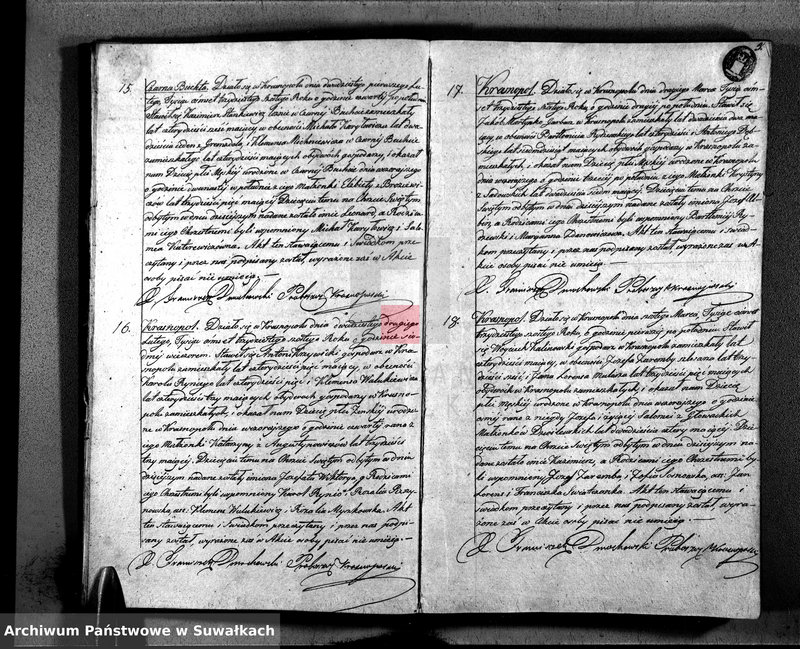 15. Czarna Buchta. Działo się w Krasnopolu dnia dwudziestego pierwszego Lu-
tego, Tysiąc ośmset trzydziestego szóstego Roku o godzinie czwartej po południu
Stawił się Kazimierz
lat czterdzieści sześć mający w obecności Michała Karyłowicza lat dwa-
dzieścia i Klemensa w Czarnej Buchcie
zamieszkałego lat czterdzieści mających obydwóch gospodarzy, i okazał
nam Dziecię płci Męskiej urodzone w Czarnej Buchcie dnia wczorajszego
o godzinie dwunastej w południe z jego Małżonki Elżbiety z
lat trzydzieści mającej Dziecięciu temu na Chrzcie Świętym
odbytym w dniu dzisiejszym nadane zostało imię Leonard, a Rodzica-
mi jego Chrzestnemi byli wspomniony Michał Karyłowicz i
Akt ten stawiającemu i Świadkom prze-
czytany i przez nas podpisany został, wyrażone zaś w Akcie
osoby pisać nie umieją. —
X. Franciszek Dmochowski Proboszcz Krasnopolski
16. Krasnopol. Działo się w Krasnopolu dnia dwudziestego drugiego
Lutego, Tysiąc ośmset trzydziestego szóstego Roku, o godzinie sió-
dmej wieczorem. Stawił się Antoni gospodarz w Kra-
snopolu zamieszkały lat czterdzieści pięć mający, w obecności
Karola Rynicza lat czterdzieści pięć i Klemensa Walukiewicza
lat czterdzieści trzy mających obydwóch gospodarzy w Krasno-
polu zamieszkałych, i okazał nam Dziecię płci Żeńskiej urodzo-
ne w Krasnopolu dnia wczorajszego o godzinie czwartej rano z
jego Małżonki Katarzyny z Augustynowiczów lat trzydzieści
trzy mającej. Dziecięciu temu na Chrzcie Świętym odbytym w dniu
dzisiejszym nadane zostały imiona Józefata Wiktorya, a Rodzicami
jego Chrzestnemi byli wspomniony Karol Rynicz i Rozalia
Klemens Walukiewicz i Rozalia Myszkowska. Akt
ten stawiającemu i Świadkom przeczytany i przez nas podpi-
sany został, wyrażone zaś w Akcie osoby pisać nie umieją. —
X. Franciszek Dmochowski Proboszcz Krasnopolski
17. Krasnopol. Działo się w Krasnopolu dnia drugiego Marca, Tysiąc ośm-
set trzydziestego szóstego Roku, o godzinie drugiej po południu. Stawił się
Jakób w Krasnopolu zamieszkały lat dwadzieścia dwa ma-
jący, w obecności Bartłomieja Rydzewskiego lat czterdzieści i Antoniego
lat mających obydwóch gospodarzy w Krasnopolu za-
mieszkałych, i okazał nam Dziecię płci Męskiej urodzone w Krasnopolu
dnia wczorajszego o godzinie trzeciej po południu z jego Małżonki Krystyny
z Sadowskich lat dwadzieścia siedm mającej. Dziecięciu temu na Chrzcie
Świętym odbytym w dniu dzisiejszym nadane zostały imiona Józef
a Rodzicami jego Chrzestnemi byli wspomniony Bartłomiej Ry-
dzewski i Maryanna Akt ten stawiającemu i Świad-
kom przeczytany i przez nas podpisany został, wyrażone zaś w A-
kcie osoby pisać nie umieją. —
X. Franciszek Dmochowski Proboszcz Krasnopolski
18. Krasnopol. Działo się w Krasnopolu dnia szóstego Marca, Tysiąc ośmset
trzydziestego szóstego Roku, o godzinie pierwszej po południu. Stawił
się Wojciech gospodarz w Krasnopolu zamieszkały lat
czterdzieści mający, w obecności Józefa Zaremby lat trzy-
dzieści sześć, i Jana Lorensa lat trzydzieści pięć mających
obydwóch w Krasnopolu zamieszkałych, i okazał nam Dziecię
płci męskiej urodzone w Krasnopolu dnia wczorajszego o godzinie
rano z niegdy Józefa i żyjącej Salomei z
Małżonków lat dwadzieścia cztery mającej. Dzie-
cięciu temu na Chrzcie Świętym odbytym w dniu dzisiejszym na-
dane zostało imię Kazimierz, a Rodzicami jego Chrzestnemi by-
li wspomniony Józef Zaremba i Zofia Sosnowska, Jan
Lorens i Franciszka Akt ten stawiającemu i
Świadkom przeczytany i przez nas podpisany został, wyra-
żone zaś w Akcie osoby pisać nie umieją. —
X. Franciszek Dmochowski Proboszcz Krasnopolski
Archiwum Państwowe w Suwałkach